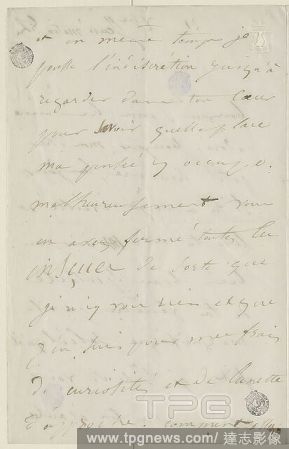 et en meme temps je
pousse l'indiscretion jusqu'à
regarder dans ton Cœur
pour savoir quelle place
ma pensée y occupe.
malheureusement vous
en avez fermé toutes les
issues de sorte que
je n'y vois rien et que
j'en suis pour mes frais
de curiosité et de
comment
TPG
www.tpgnews.com / 達志影像